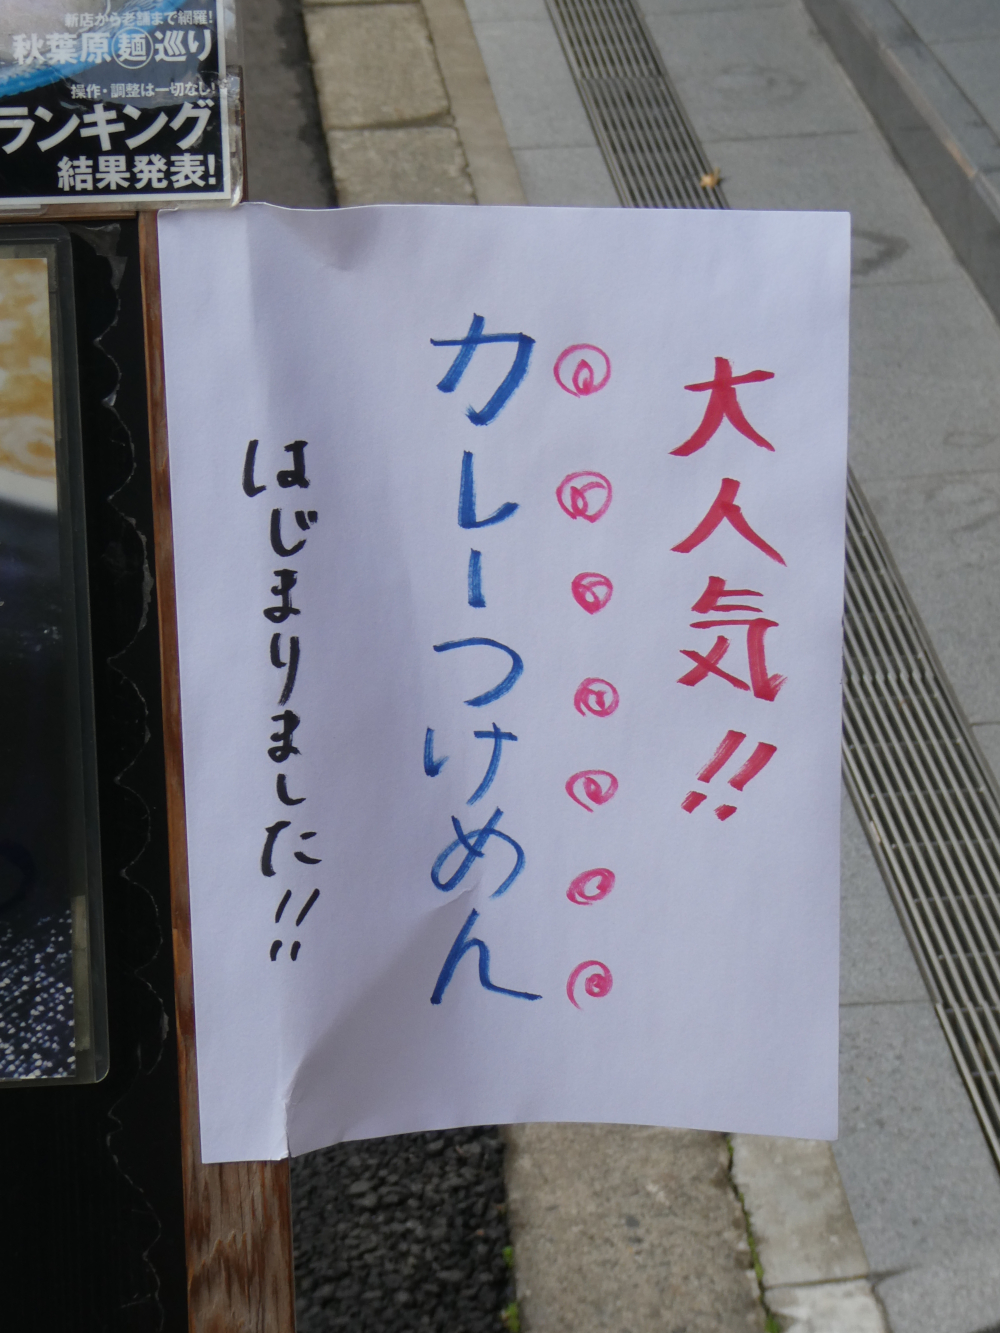 新店から老舗まで網羅!
秋葉原麺巡り
操作・調整は一切なし!
ランキング
結果発表!
大人気!!
カレーつけめん
はじまりました!!